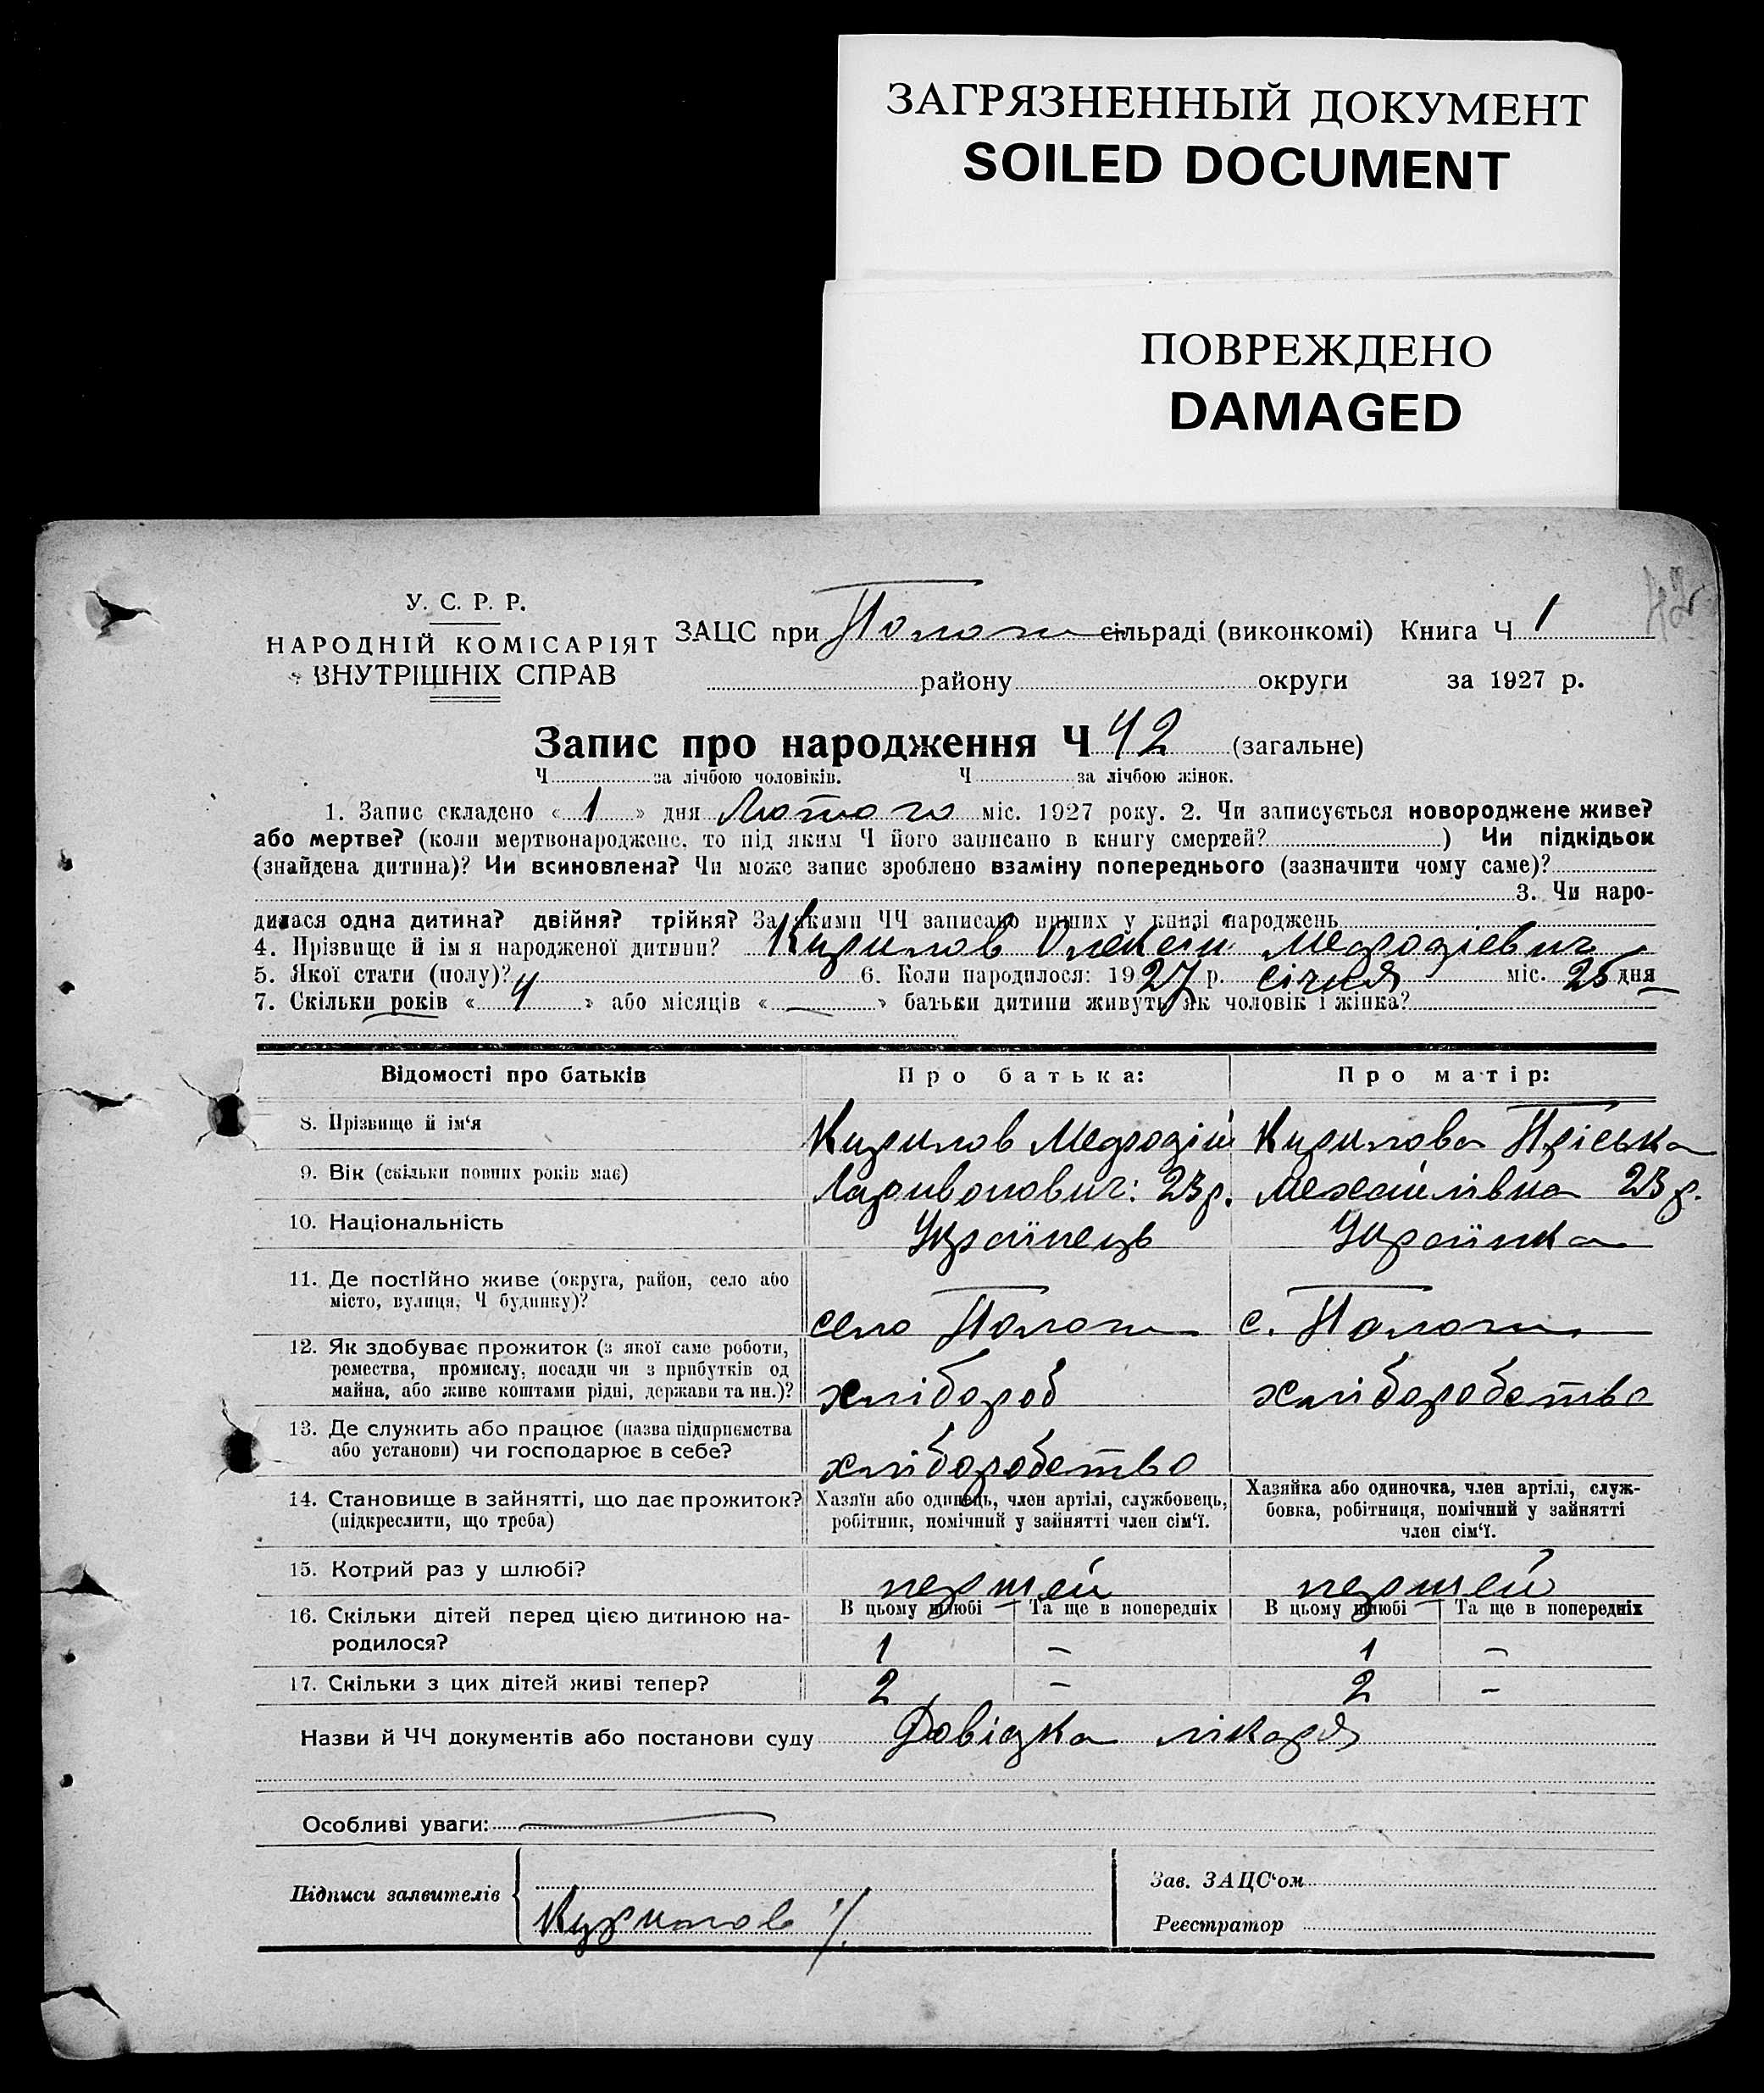 ЗАГРЯЗНЕННЫЙ ДОКУМЕНТ
SOILED DOCUMENT
ПОВРЕЖДЕНО
DAMAGED
42
У. С. Р. Р.
НАРОДНІЙ КОМІСАРІЯТ
ВНУТРІШНІХ СПРАВ
ЗАЦС при Пологи сільраді (виконкомі) Книга Ч 1
району округи за 1927 р.
Запис про народження Ч 42 (загальне)
Ч за лічбою чоловіків. Ч за лічбою жінок.
1. Запис складено « 1 » дня Лютого міс. 1927 року. 2. Чи записується новороджене живе?
або мертве? (коли мертвонароджене, то під яким Ч його записано в книгу смертей? ) Чи підкідьок
(знайдена дитина)? Чи всиновлена? Чи може запис зроблено взаміну попереднього (зазначити чому саме)?
3. Чи наро-
дилася одна дитина? двійня? трійня? За якими ЧЧ записано инших у книзі народжень
4. Прізвище й ім я народженої дитини? Кирилов Олексій Медродієвич
5. Якої стати (полу)? Ч 6. Коли народилося: 1927 р. січня міс. 25 дня
7. Скільки років « 4 » або місяців « — » батьки дитини живуть як чоловік і жінка?
Відомості про батьків Про батька: Про матір:
8. Прізвище й ім‘я Кирилов Медродій Кирилова Пріська
9. Вік (скільки повних років має) Ларивонович: 23 р. Мехайлівна 23 р.
10. Національність Українець Українка
11. Де постійно живе (округа, район, село або
місто, вулиця, Ч будинку)? село Пологи с. Пологи
12. Як здобуває прожиток (з якої саме роботи,
ремества, промислу, посади чи з прибутків од
майна, або живе коштами рідні, держави та ин.)? хлібороб хліборобство
13. Де служить або працює (назва підприємства
або установи) чи господарює в себе? хліборобство
14. Становище в зайнятті, що дає прожиток?
(підкреслити, що треба)
Хазяїн або одинець, член артілі, службовець,
робітник, помічний у зайнятті член сім‘ї.
Хазяйка або одиночка, член артілі, служ-
бовка, робітниця, помічний у зайнятті
член сім‘ї.
15. Котрий раз у шлюбі? першей першей
В цьому шлюбі Та ще в попередніх В цьому шлюбі Та ще в попередніх
16. Скільки дітей перед цією дитиною на-
родилося? 1 – 1 –
17. Скільки з цих дітей живі тепер? 2 – 2 –
Назви й ЧЧ документів або постанови суду Довідка лікаря
Особливі уваги:
Підписи заявителів
Кирилов
Зав. ЗАЦС‘ом
Реєстратор